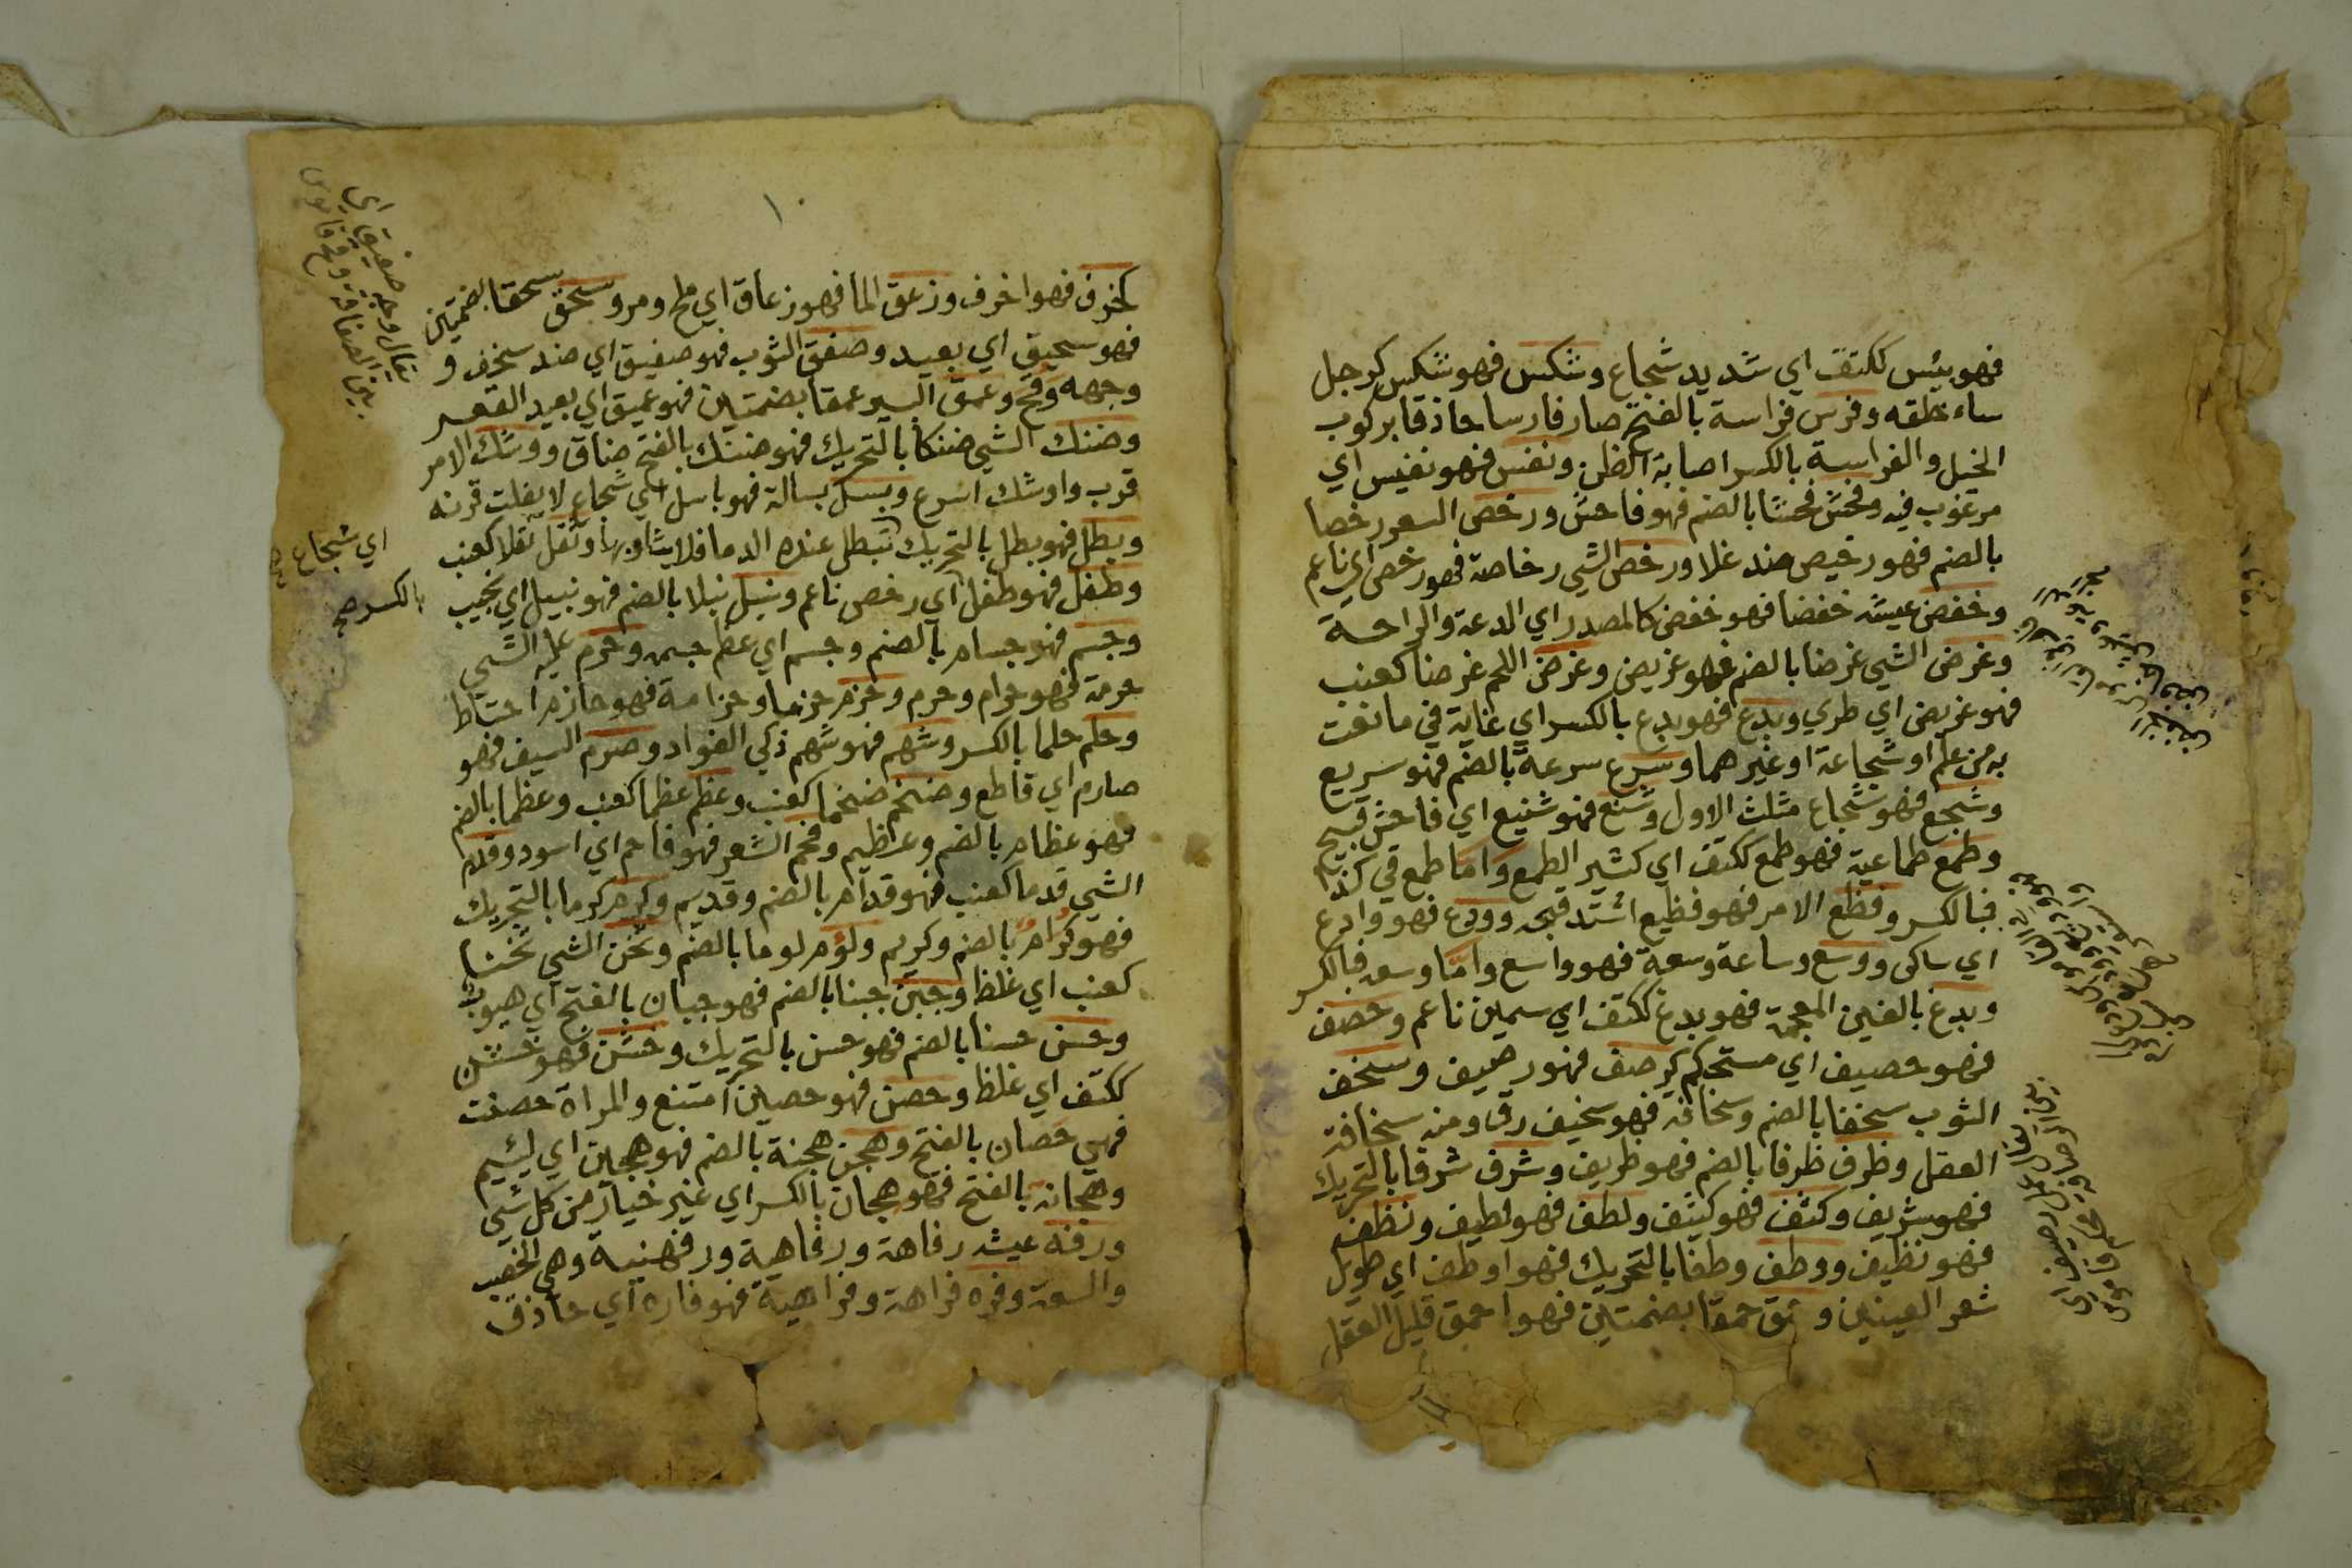 فهو بئس ككتف اي شديد شجاع وشكس فهو شكس كرجل
ساء خلقه وفرس فراسة بالفتح صار فارسا حاذقا بركوب
الخيل والفراسة بالكسر اصابة الظن ونفس فهو نفيس اي
مرغوب فيه وفحش فحشا بالضم فهو فاحش ورخص السعر رخصا
بالضم فهو رخيص ضد غلا ورخص الشي رخاصة فهو رخص اي ناعم
وخفض عيشه خفضا فهو خفض كالمصدر اي الدعة والراحة
وغرض الشي غرضا بالضم فهو غريض وغرض اللحم غرضا كعنب
فهو غريض اي طري وبدع فهو بدع بالكسر اي غاية في ما نعت
به من علم او شجاعة او غيرهما وسرع سرعة بالضم فهو سريع
وشجع فهو شجاع مثلث الاول وشنع فهو شنيع اي فاحش قبيح
وطمع طماعية فهو طمع ككتف اي كثير الطمع واما طمع في كذا
فبالكسر وفظع الامر فهو فظيع اشتد قبحه وودع فهو وادع
اي ساكن ووسع وساعة وسعة فهو واسع واما وسعه فبالكسر
وبدغ بالغين المعجمة فهو بدغ ككتف اي سمين ناعم وحصف
فهو حصيف اي مستحكم كرصف فهو رصيف وسخف
الثوب سخفا بالضم وسخافة فهو سخيف رق ومنه سخافة
العقل وظرف ظرفا بالضم فهو ظريف وشرف شرفا بالتحريك
فهو شريف وكثف فهو كثيف ولطف فهو لطيف ونظف
فهو نظيف ووطف وطفا بالتحريك فهو اوطف اي طويل
شعر العينين وحمق حمقا بضمتين فهو احمق قليل العقل
١٠
كخرف فهو اخرف وزعق الما فهو زعاق اي ملح ومر وسحق سحقا بضمتين
فهو سحيق اي بعيد وصفق الثوب فهو صفيق اي ضد سخف و
وجهه وقح وعمق البير عمقا بضمتين فهو عميق اي بعيد القعر
وضنك الشي ضنكا بالتحريك فهو ضنك بالفتح ضاق ووشك الامر
قرب واوشك اسرع وبسل بسالة فهو باسل اي شجاع لا يفلت قرنه
وبطل فهو بطل بالتحريك تبطل عنده الدما فلا يثاربها وثقل ثقلا كعنب
وطفل فهو طفل اي رخص ناعم ونبل نبلا بالضم فهو نبيل اي نجيب
وجسم فهو جسام بالضم وجسم اي عظم جسمه وحرم عليه الشي
حرمة فهو حرام وحرم وحزم حزما وحزامة فهو حازم احتاط
وحلم حلما بالكسر وشهم فهو شهم ذكي الفواد وصرم السيف فهو
صارم اي قاطع وضخم ضخما كعنب وعظم عظما كعنب وعظما بالضم
فهو عظام بالضم وعظيم وفحم الشعر فهو فاحم اي اسود وقدم
الشي قدما كعنب فهو قدام بالضم وقديم وكرم كرما بالتحريك
فهو كرام بالضم وكريم ولؤم لوما بالضم وثخن الشي ثخنا
كعنب اي غلظ وجبن جبنا بالضم فهو جبان بالفتح اي هيوب
وحسن حسنا بالضم فهو حسن بالتحريك وخشن فهو خشن
ككتف اي غلظ وحصن فهو حصين امتنع والمراة حصنت
فهي حصان بالفتح وهجن هجنة بالضم فهو هجين اي ليئيم
وهجانه بالفتح فهو هجان بالكسر اي غير خيار من كل شي
ورفه عيشه رفاهة ورفاهية ورفهنية وهي الخصب
والسعة وفره فراهة وفراهية فهو فاره اي حاذق
يقال وجه صفيق اي
بين الصفاقة وقح قاموس
اي شجاع
بالكسر صح